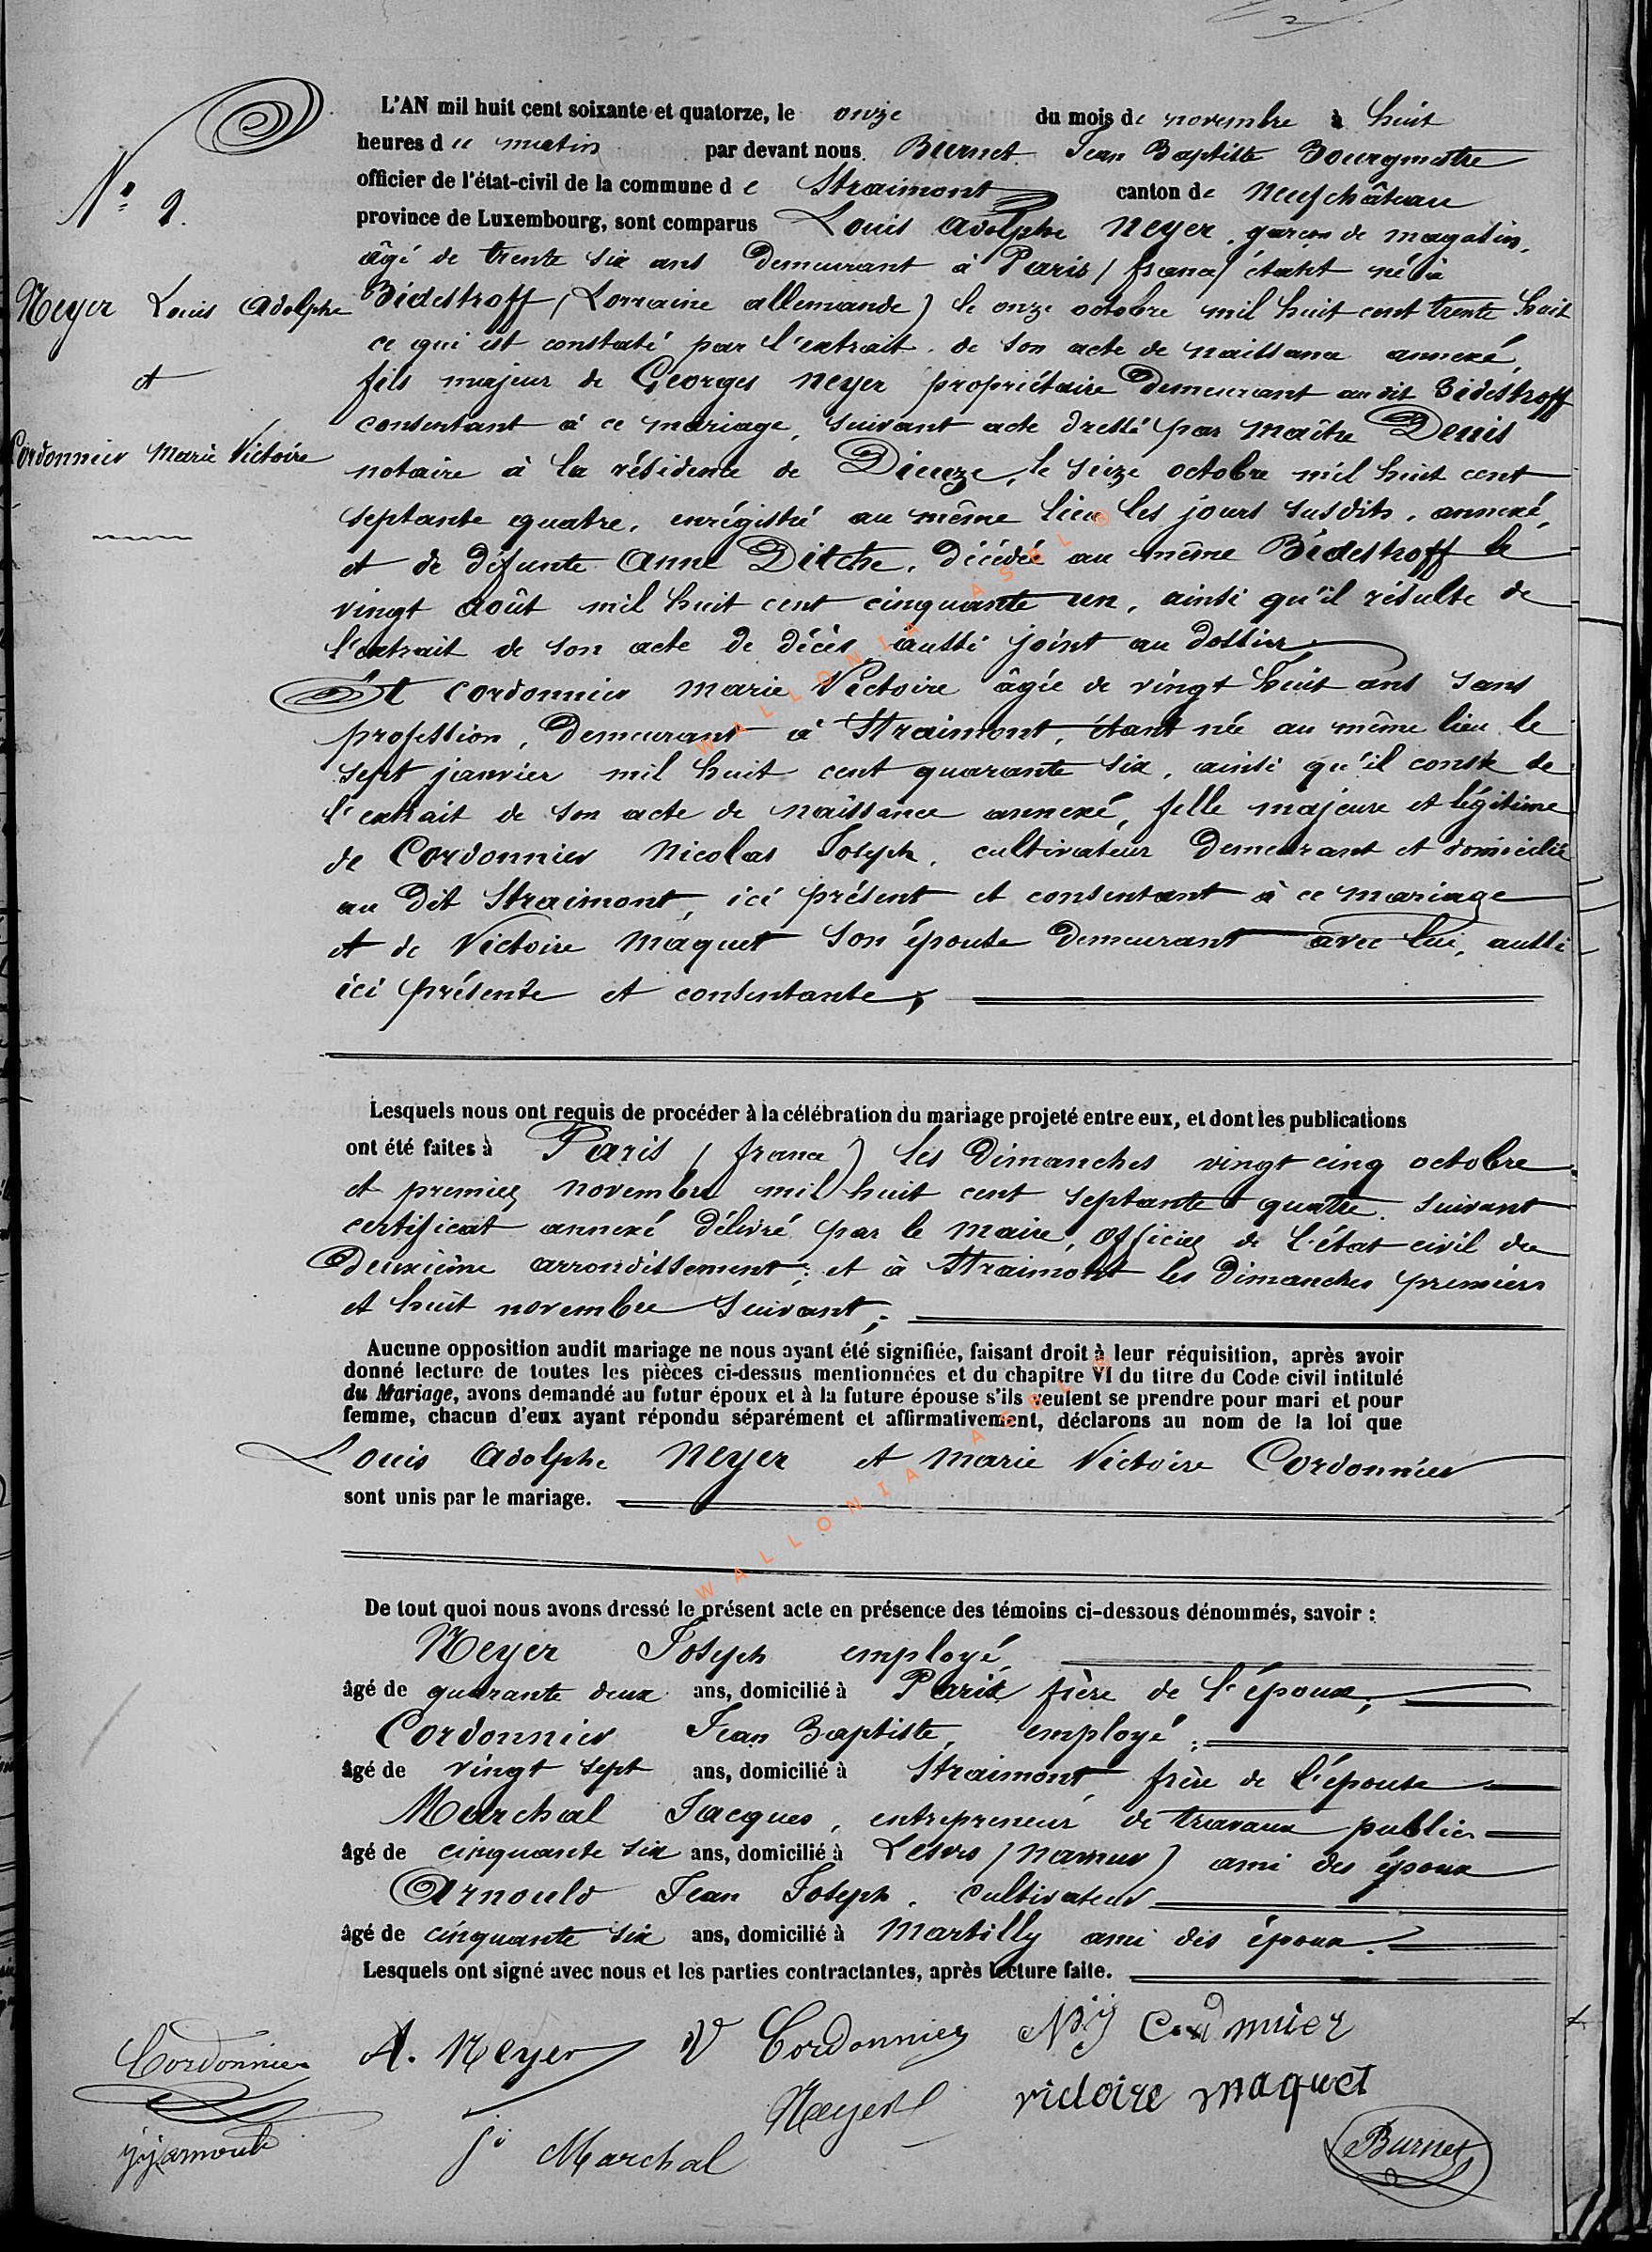 L'AN mil huit cent soixante et quatorze, le onze du mois de novembre à huit
heures du matin par devant nous Burnet Jean Baptiste Bourgmestre
officier de l'état-civil de la commune de Straimont canton de Neufchâteau
province de Luxembourg, sont comparus Louis Adolphe Neyer, garçon de magasin,
âgé de trente six ans demeurant à Paris (france) étant né à
Bidestroff (Lorraine allemande) le onze octobre mil huit cent trente huit
ce qui est constaté par l'extrait de son acte de naissance annexé,
fils majeur de Georges Neyer propriétaire demeurant au dit Bidestroff
consentant à ce mariage, suivant acte dressé par Maître Denis
notaire à la résidence de Dieuze, le seize octobre mil huit cent
septante quatre, enrégistré au même lieu les jours susdits, annexé,
et de défunte Anne Ditche, décédée au même Bidestroff le
vingt août mil huit cent cinquante un, ainsi qu'il résulte de
l'extrait de son acte de décès aussi joint au dossier
Et Cordonnier Marie Victoire âgée de vingt huit ans sans
profession, demeurant à Straimont, étant née au même lieu le
sept janvier mil huit cent quarante six, ainsi qu'il conste de
l'extrait de son acte de naissance annexé, fille majeure et légitime
de Cordonnier Nicolas Joseph, cultivateur demeurant et domicilié
au dit Straimont, ici présent et consentant à ce mariage
et de Victoire Maquet son épouse demeurant avec lui, aussi
ici présente et consentante;
N° 9.
Neyer Louis Adolphe
et
Cordonnier Marie Victoire
Lesquels nous ont requis de procéder à la célébration du mariage projeté entre eux, et dont les publications
ont été faites à Paris (france) les dimanches vingt cinq octobre
et premier novembre mil huit cent septante quatre suivant
certificat annexé délivré par le Maire, officier de l'état civil du
deuxième arrondissement; et à Straimont les dimanches premier
et huit novembre suivant;
Aucune opposition audit mariage ne nous ayant été signifiée, faisant droit à leur réquisition, après avoir
donné lecture de toutes les pièces ci-dessus mentionnées et du chapitre VI du titre du Code civil intitulé
du Mariage, avons demandé au futur époux et à la future épouse s'ils veulent se prendre pour mari et pour
femme, chacun d'eux ayant répondu séparément et affirmativement, déclarons au nom de la loi que
Louis Adolphe Neyer et Marie Victoire Cordonnier
sont unis par le mariage.
De tout quoi nous avons dressé le présent acte en présence des témoins ci-dessous dénommés, savoir :
Neyer Joseph employé,
âgé de quarante deux ans, domicilié à Paris frère de l'époux;
Cordonnier Jean Baptiste, employé;
âgé de vingt sept ans, domicilié à Straimont, frère de l'épouse
Marchal Jacques, entrepreneur de travaux publics
âgé de cinquante six ans, domicilié à Lesves (Namur) ami des époux
Arnould Jean Joseph, cultivateur
âgé de cinquante six ans, domicilié à Martilly ami des époux.
Lesquels ont signé avec nous et les parties contractantes, après lecture faite.
Cordonnier A. Neyer V Cordonnier Nj Cordonnier
Neyer victoire maquet
jjarnould J. Marchal Burnet
WALLONIA ASBL ©
WALLONIA ASBL ©